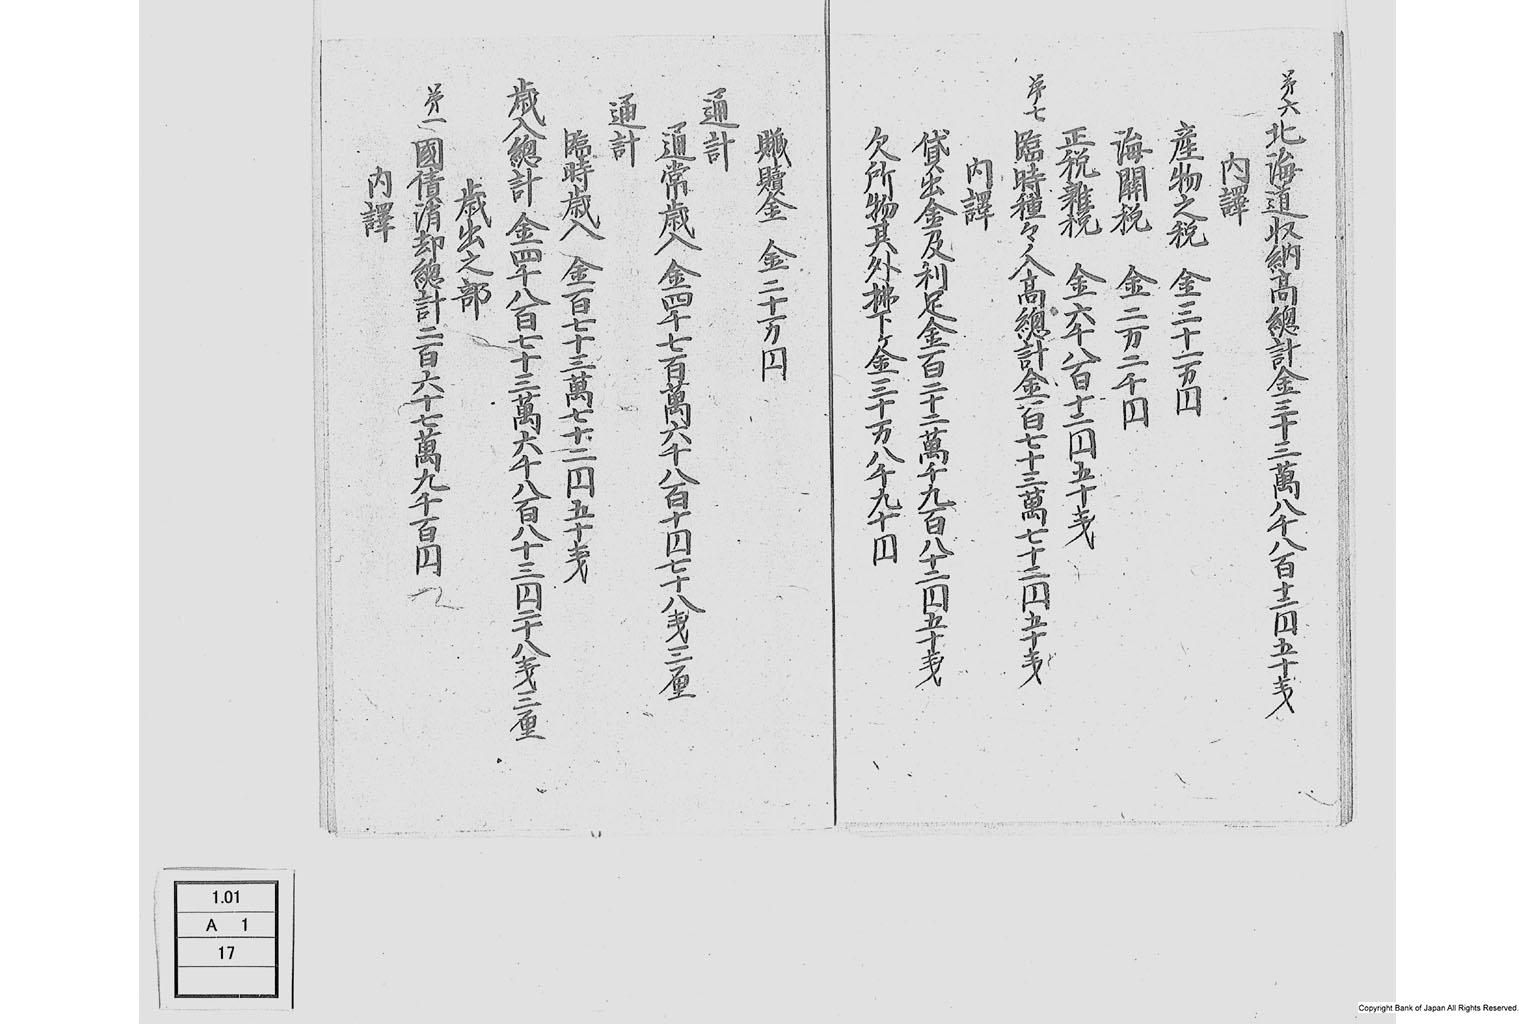 第六北海道収納高總計金三十三萬八千八百十二円五十戋
内譯
産物之税 金三十一万円
海關税 金二万二千円
正税雜税 金六千八百十二円五十戋
第七臨時種々ノ入高總計金百七十三萬七十二円五十戋
内譯
貸出金及利足金百二十二萬千九百八十二円五十戋
欠所物其外拂下ヶ金三十万八千九十円
贓贖金 金二十万円
通計
通常歳入金四千七百萬六千八百十円七十八戋三厘
通計
臨時歳入 金百七十三萬七十二円五十戋
歳入總計 金四千八百七十三萬六千八百八十三円二十八戋三厘
歳出之部
第一國債消却總計二百六十七萬九千百円
内譯
1.01
A 1
17
Copyright Bank of Japan All Rights Reserved.